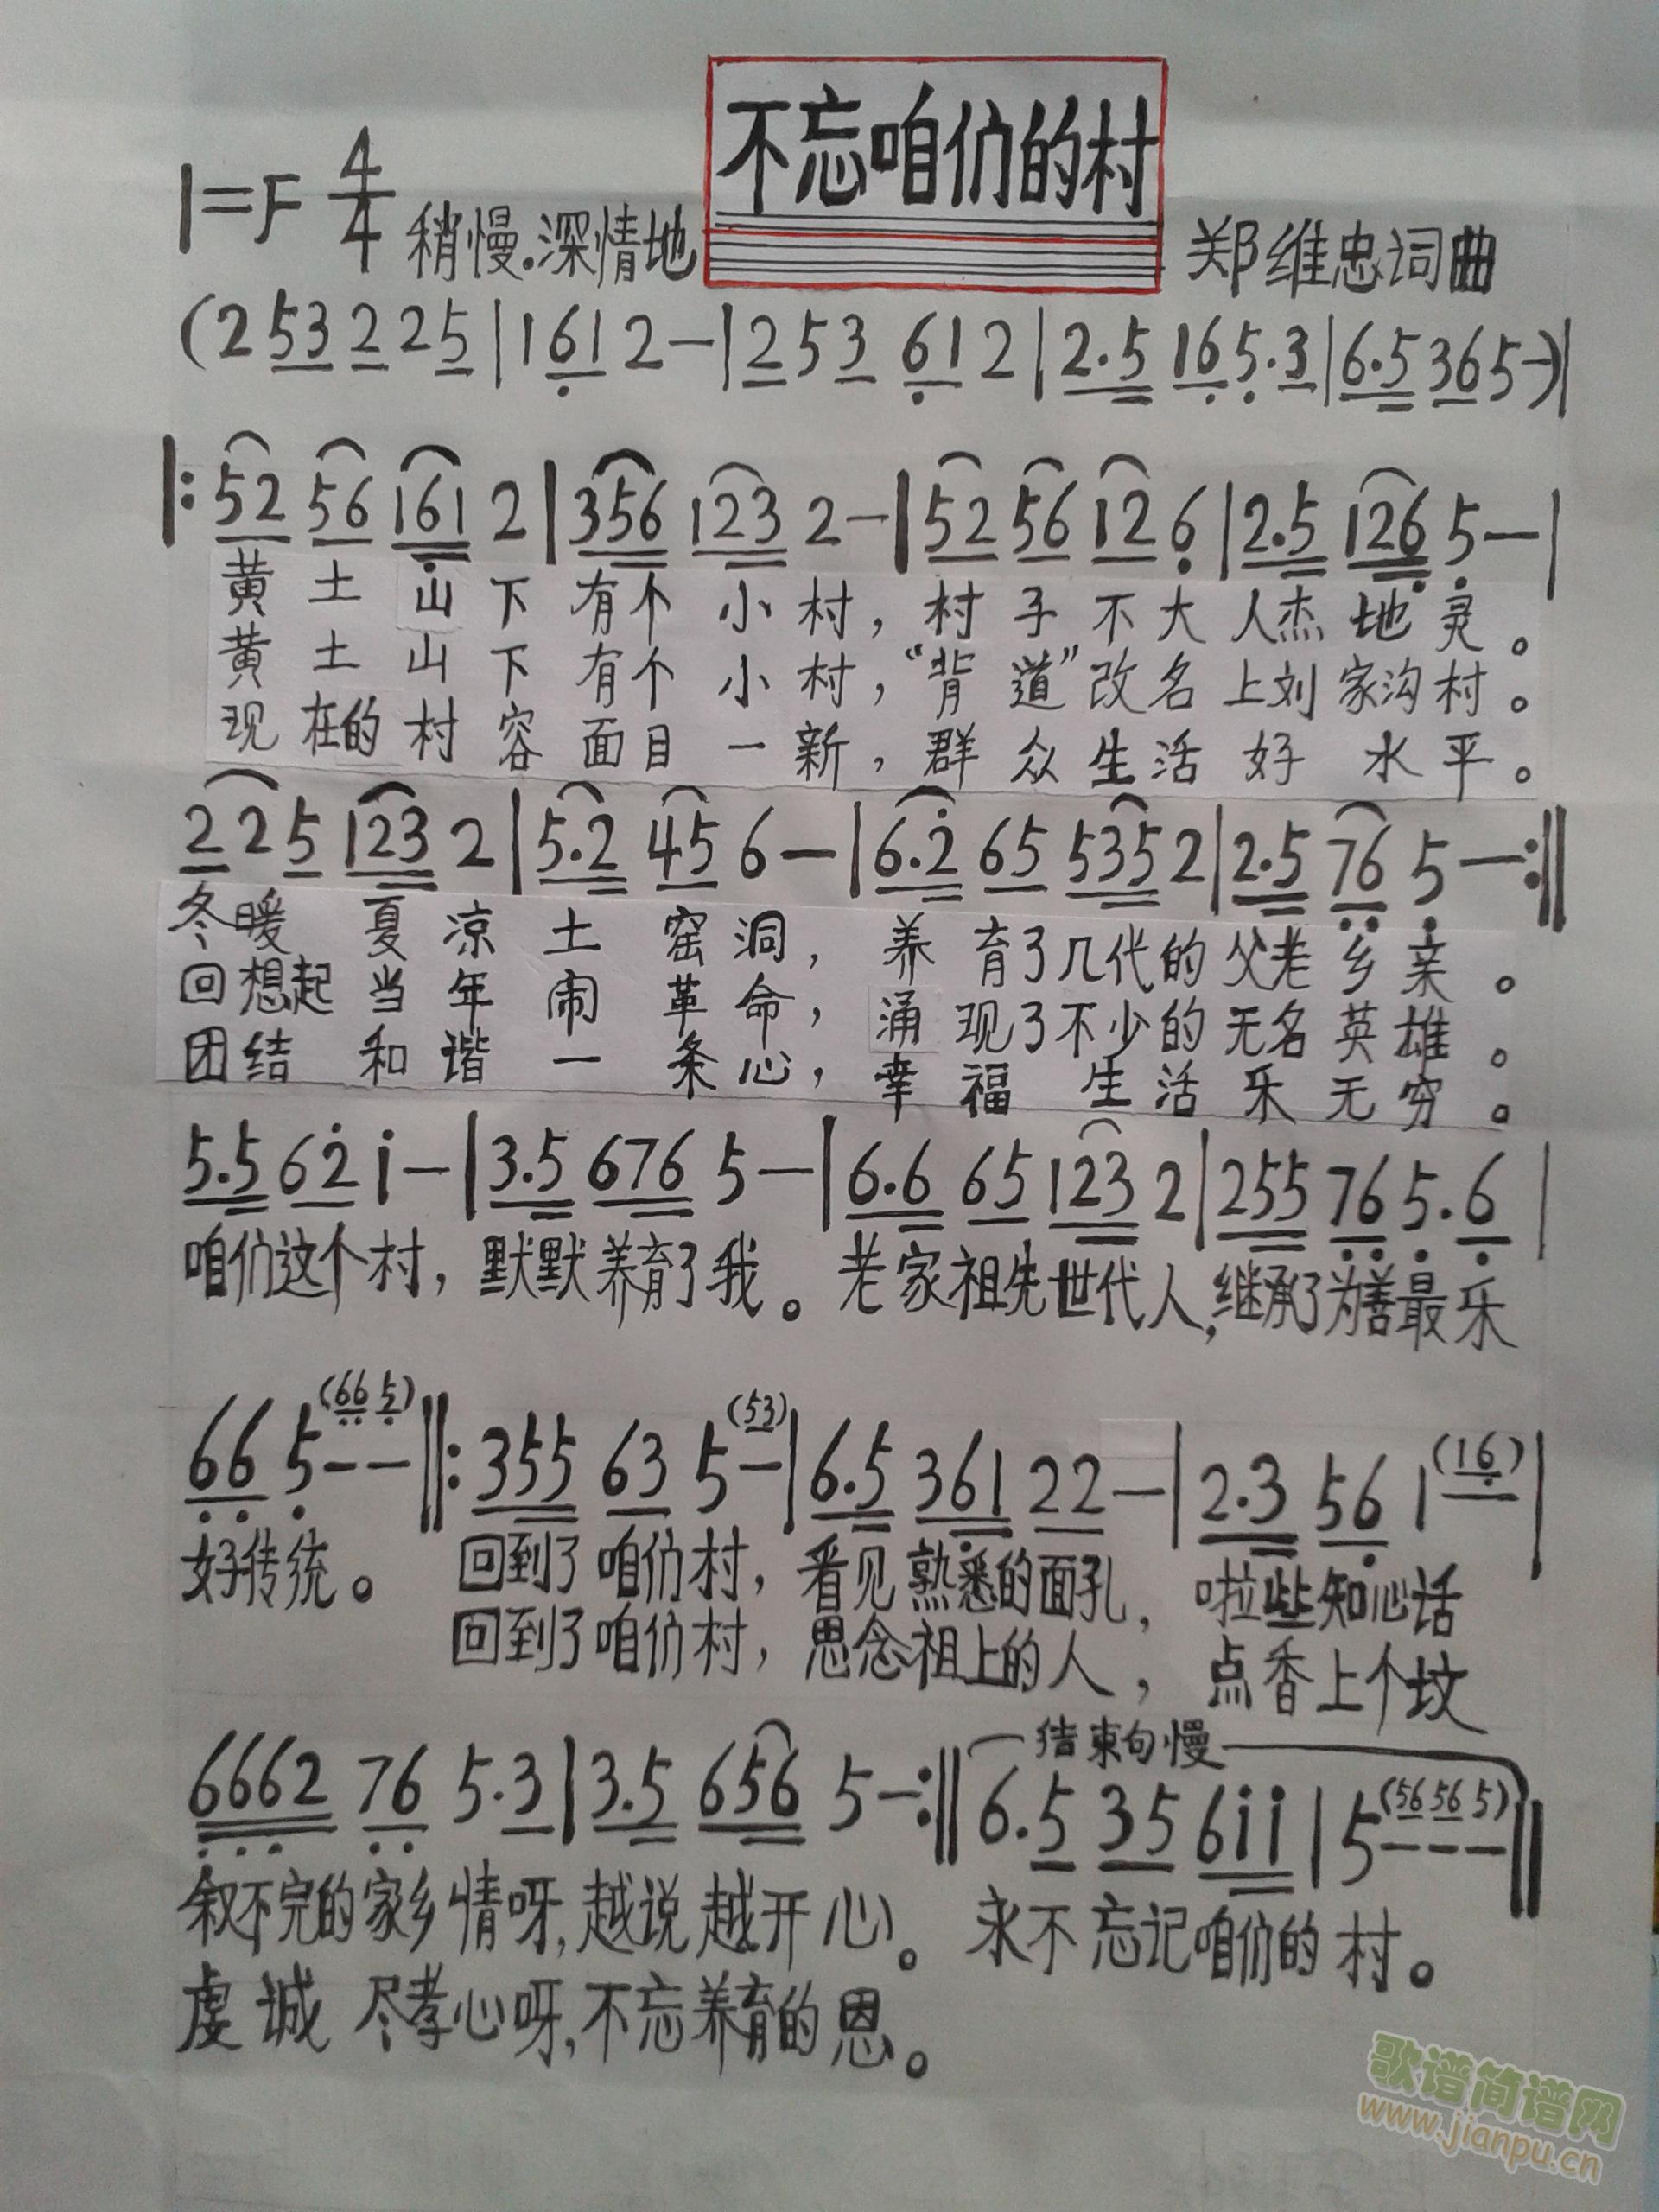 不忘咱们的村
1=F 4/4 稍慢.深情地
郑维忠词曲
(2 53 2 25|161 2—|2 53 612|2.5 165.3|6.5 365—)|
|:52 56 161 2|356 123 2—|52 56 12 6|2.5 126 5—|
黄土山下有个小村，村子不大人杰地灵。
黄土山下有个小村，“背道”改名上刘家沟村。
现在的村容面目一新，群众生活好水平。
2 2 5 123 2|5.2 45 6—|6.2 65 535 2|2.5 76 5—:‖
冬暖夏凉土窑洞，养育了几代的父老乡亲。
回想起当年闹革命，涌现了不少的无名英雄。
团结和谐一条心，幸福生活乐无穷。
5.5 62 i—|3.5 676 5—|6.6 65 123 2|255 76 5.6|
咱们这个村，默默养育了我。老家祖先世代人，继承了为善最乐
66 5--(66 5)‖:355 63 5—(53)|6.5 361 22—|2.3 56 1(16)|
好传统。回到了咱们村，看见熟悉的面孔，啦些知心话
回到了咱们村，思念祖上的人，点香上个坟
结束句慢
6662 76 5.3|3.5 656 5—:‖6.5 35 6ii|5---(56 56 5)‖
叙不完的家乡情呀，越说越开心。永不忘记咱们的村。
虔诚尽孝心呀，不忘养育的恩。
歌谱简谱网
www.jianpu.cn